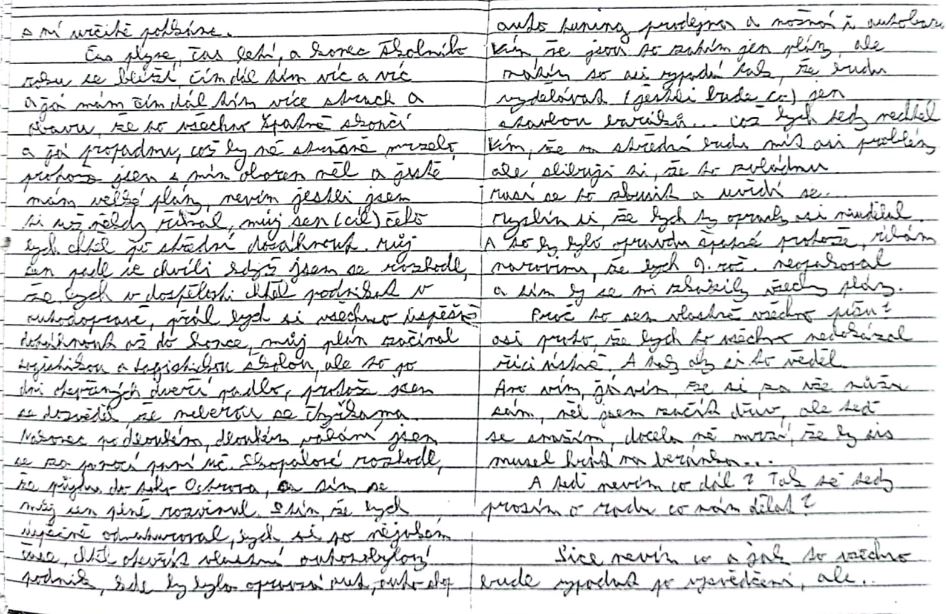 s mi určitě pohlídne.
Čas plyne, čas letí, a konec školního
roku se blíží, čím dál tím víc a víc
a já mám čím dál tím více strach a
obavu, že to všechno špatně skončí
a já propadnu, což by mě strašně mrzelo,
protože jsem s ním měl a ještě
mám velké plány, nevím jestli jsem
ti už někdy říkal, můj sen (cíl) čeho
bych chtěl po střední dosáhnout. můj
sen padl ve chvíli když jsem se rozhodl,
že bych v dospělosti chtěl podnikat v
autodopravě, přál bych si všechno úspěšně
dosáhnout až do konce, můj plán začínal
logistikou a logistickou školou, ale to po
dni otevřených dveří padlo, protože jsem
se dozvěděl že neberou se čtyřkama.
Nakonec po dlouhém, dlouhém váhání jsem
se za pomoci paní uč. Skopalové rozhodl,
že půjdu do Ostrova, a tím se
můj sen plně rozvinul. S tím, že bych
úspěšně odmaturoval, bych si po nějakém
čase, chtěl otevřít vlastní automobilový
podnik, kde by bylo opravování aut, auto shop
auto tuning prodejna a možná i autobazar
Vím že jsou to zatím jen plány, ale
zatím to asi vypadá tak, že budu
vzdělávat (jestli bude co) jen
stavbou baráků... což bych tedy nechtěl
Vím, že na střední budu mít asi problémy
ale slibuji ti, že to zvládnu.
musí se to zkusit a uvidí se.
myslím si, že bych ty opravky asi neudělal.
A to by bylo opravdu špatné protože, říkám
narovinu, že bych 9. roč. neopakoval
a tím by se mi zkazily všechny plány.
Proč to sem vlastně všechno píšu?
asi proto, že bych to všechno nedokázal
říci ústně. A tak aby si to věděl.
Ano vím, já vím, že si za vše můžu
sám, měl jsem začít dřív, ale teď
se snažím, docela mě mrzí, že by sis
musel hrát na beránka...
A teď nevím co dál? Tak tě tedy
prosím o radu co mám dělat?
Sice nevím co a jak to všechno
bude vypadat po vysvědčení, ale...